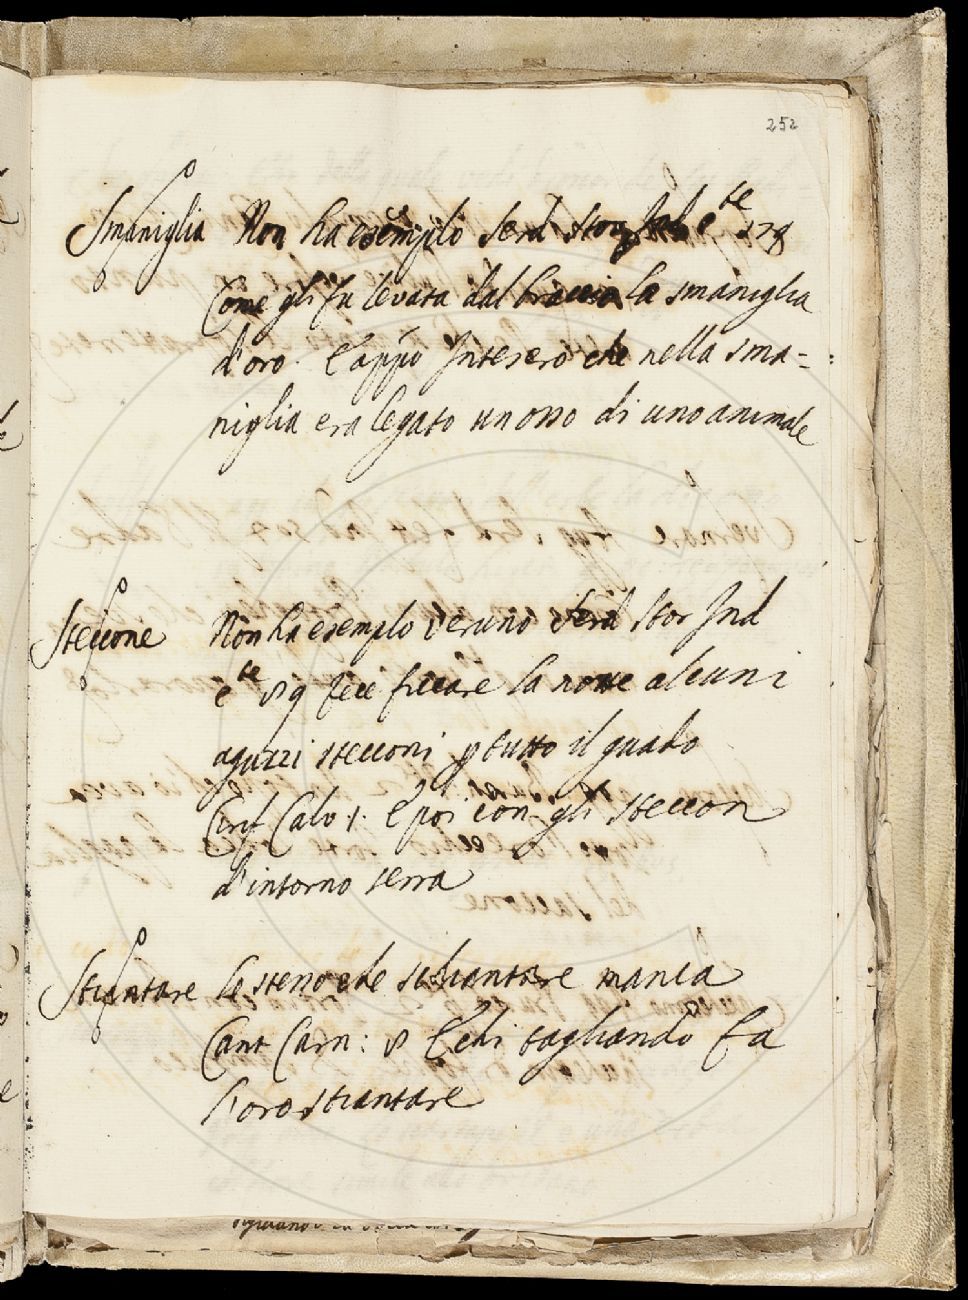 252
Smaniglia Non ha esempio Serd Stor Ind e te 178
Come gli fu levata dal braccio la smaniglia
d'oro. E appo Intesero che nella sma=
niglia era legato un osso di uno animale
Steccone Non ha esemplo veruno Serd Stor Ind
e te fece ficcare la notte alcuni
aguzzi stecconi p tutto il guado
Cirif Calv 1. E poi con gli steccon
d'intorno serra
Stiantare lo stesso che schiantare manca
Cant Carn: tagliando fa
l'oro stiantare